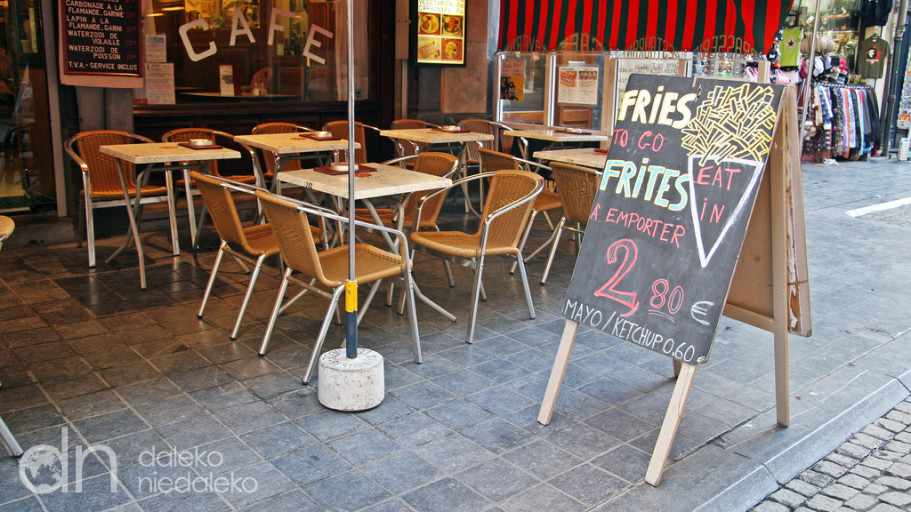 CARBONADE A LA
FLAMANDE, GARNI
LAPIN A LA
FLAMANDE, GARNI
WATERZOOI DE
VOLAILLE
WATERZOOI DE
POISSON
T.V.A - SERVICE INCLUS
CAFE
FRIES
TO GO
FRITES
EAT
IN
À EMPORTER
2,80 €
MAYO/KETCHUP 0,60 €
dn
daleko
niedaleko